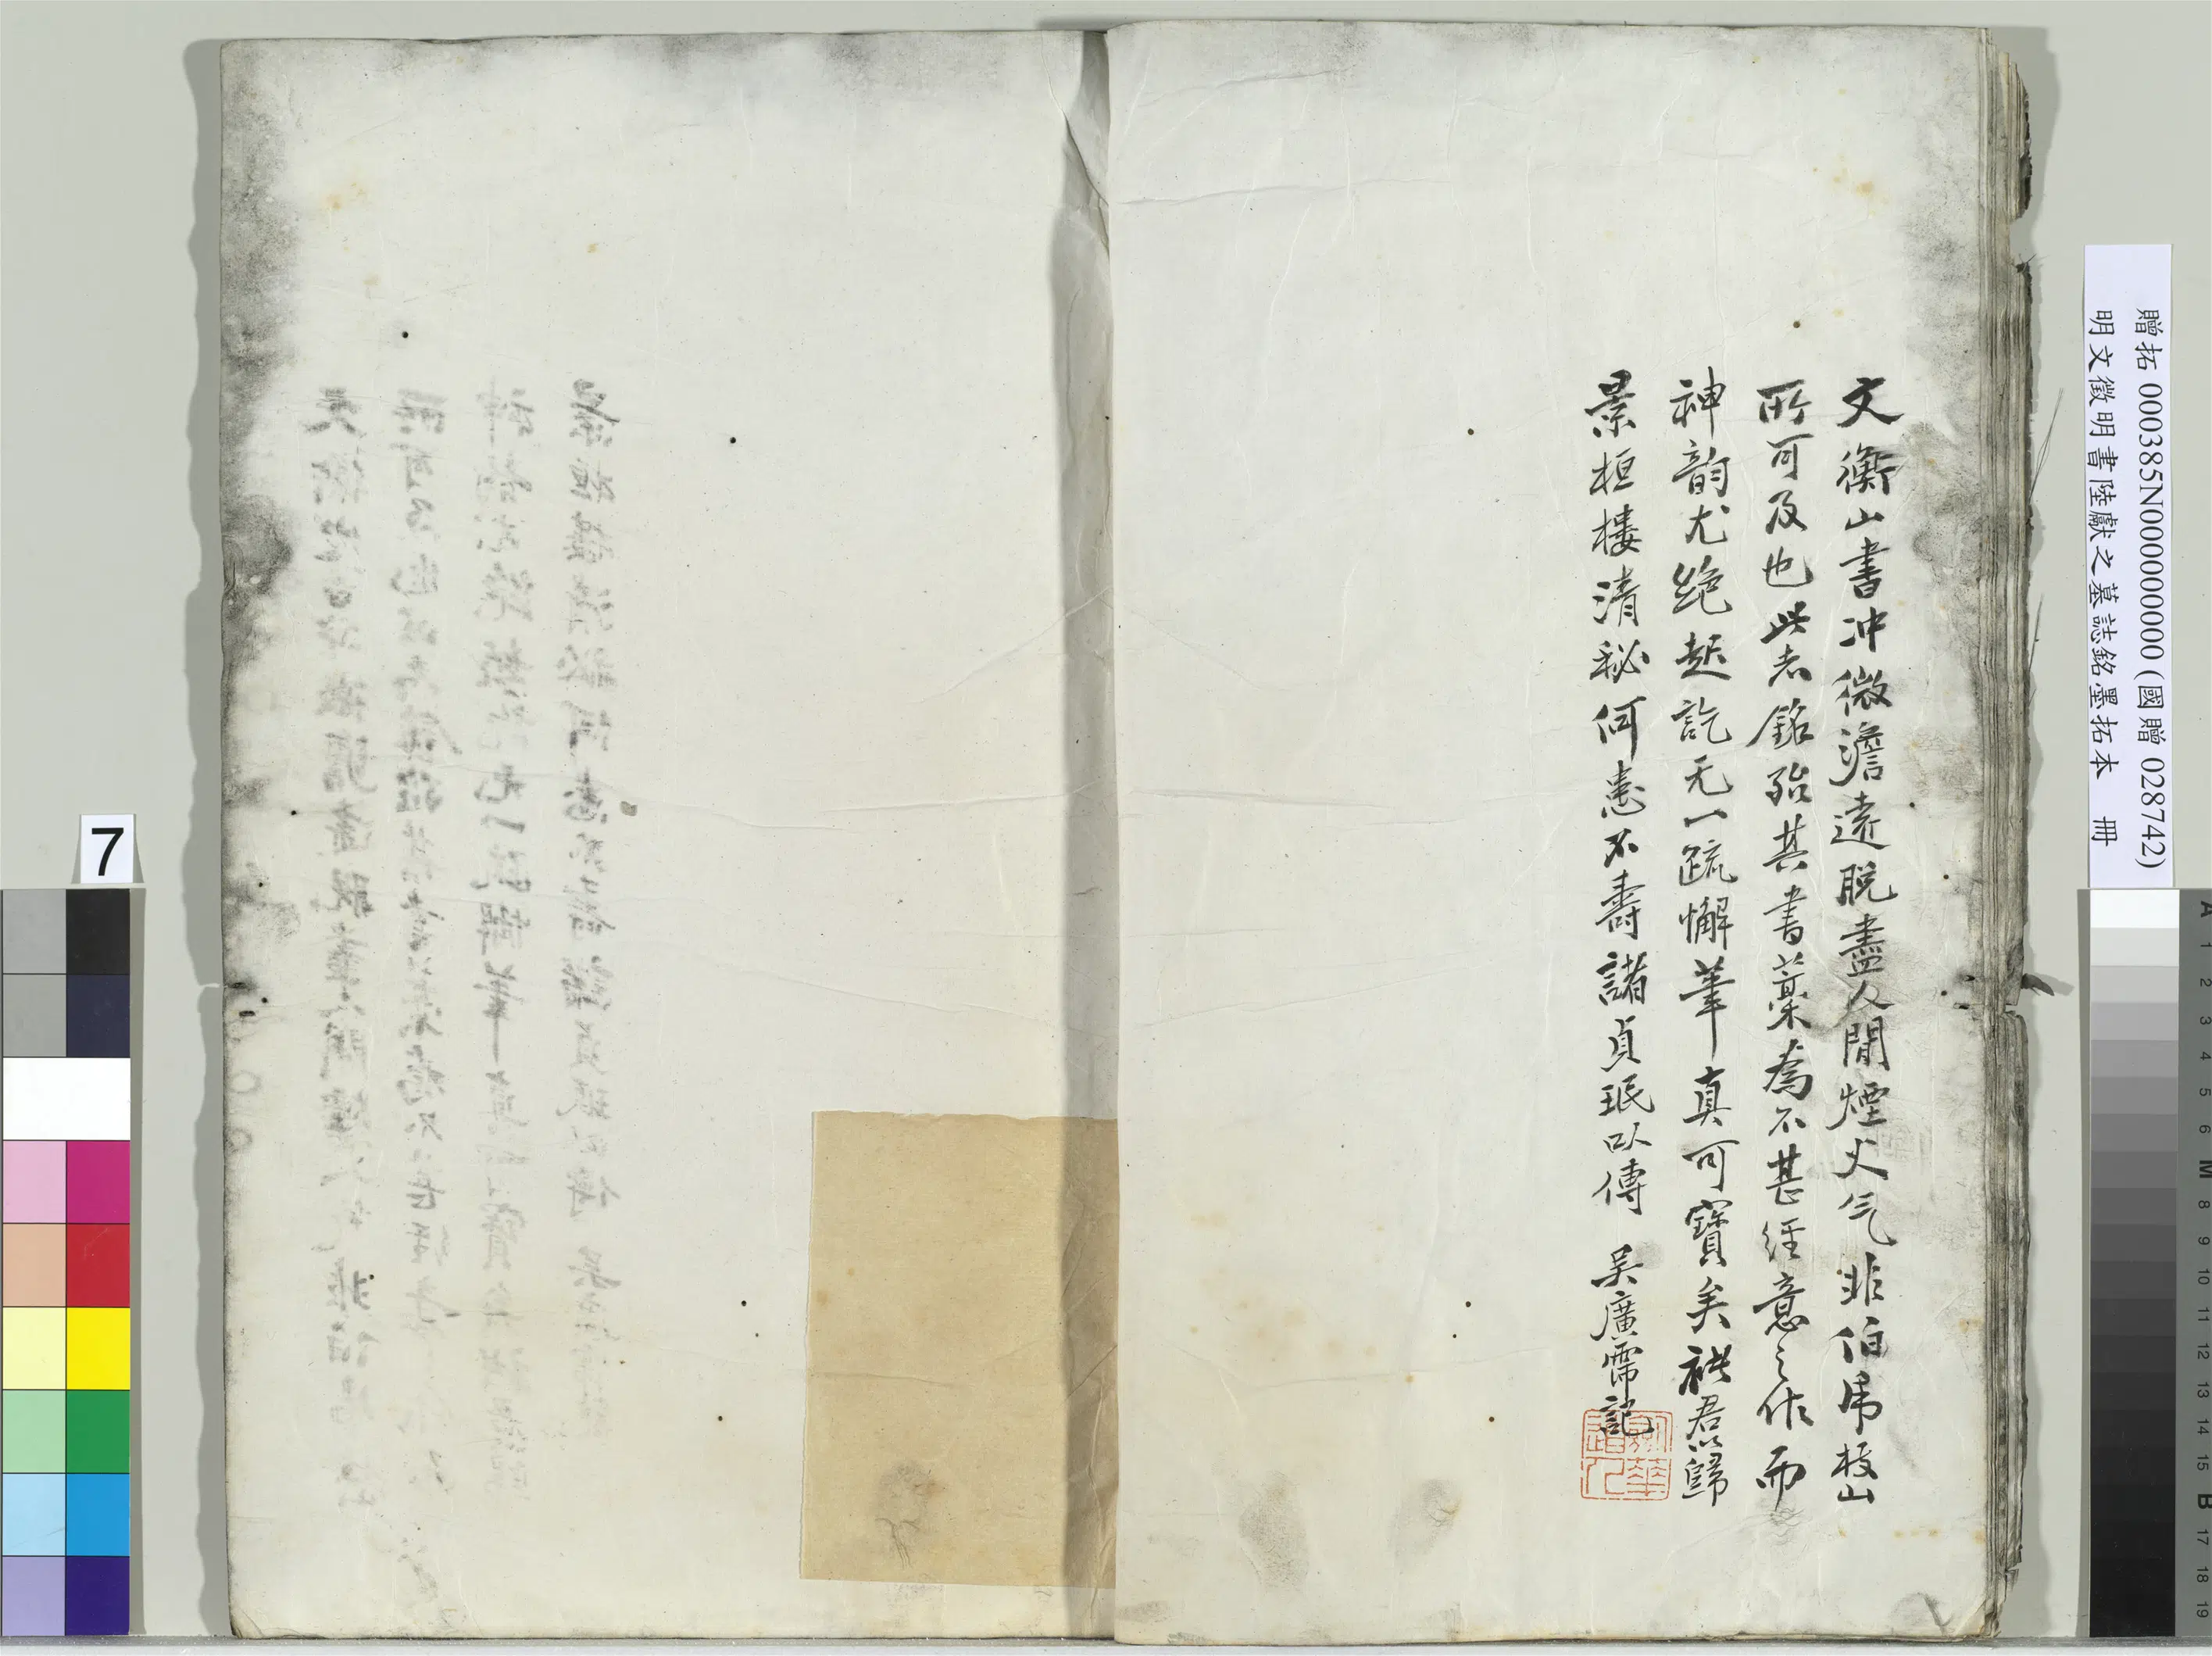 贈拓 000385N000000000 (國贈 028742)
明文徵明書陸獻之墓誌銘墨拓本 冊
文衡山書冲微澹遠脫盡人間煙火气非伯虎枝山
所可及也此志銘殆其書藁為不甚經意之作而
神韵尤绝起訖无一疏懈筆真可寶矣 君以歸
景桓樓清秘何恚不壽諸貞珉以傳 吴廣霈記
7
A 1 2 3 4 5 6 M 8 9 10 11 12 13 14 15 B 17 18 19